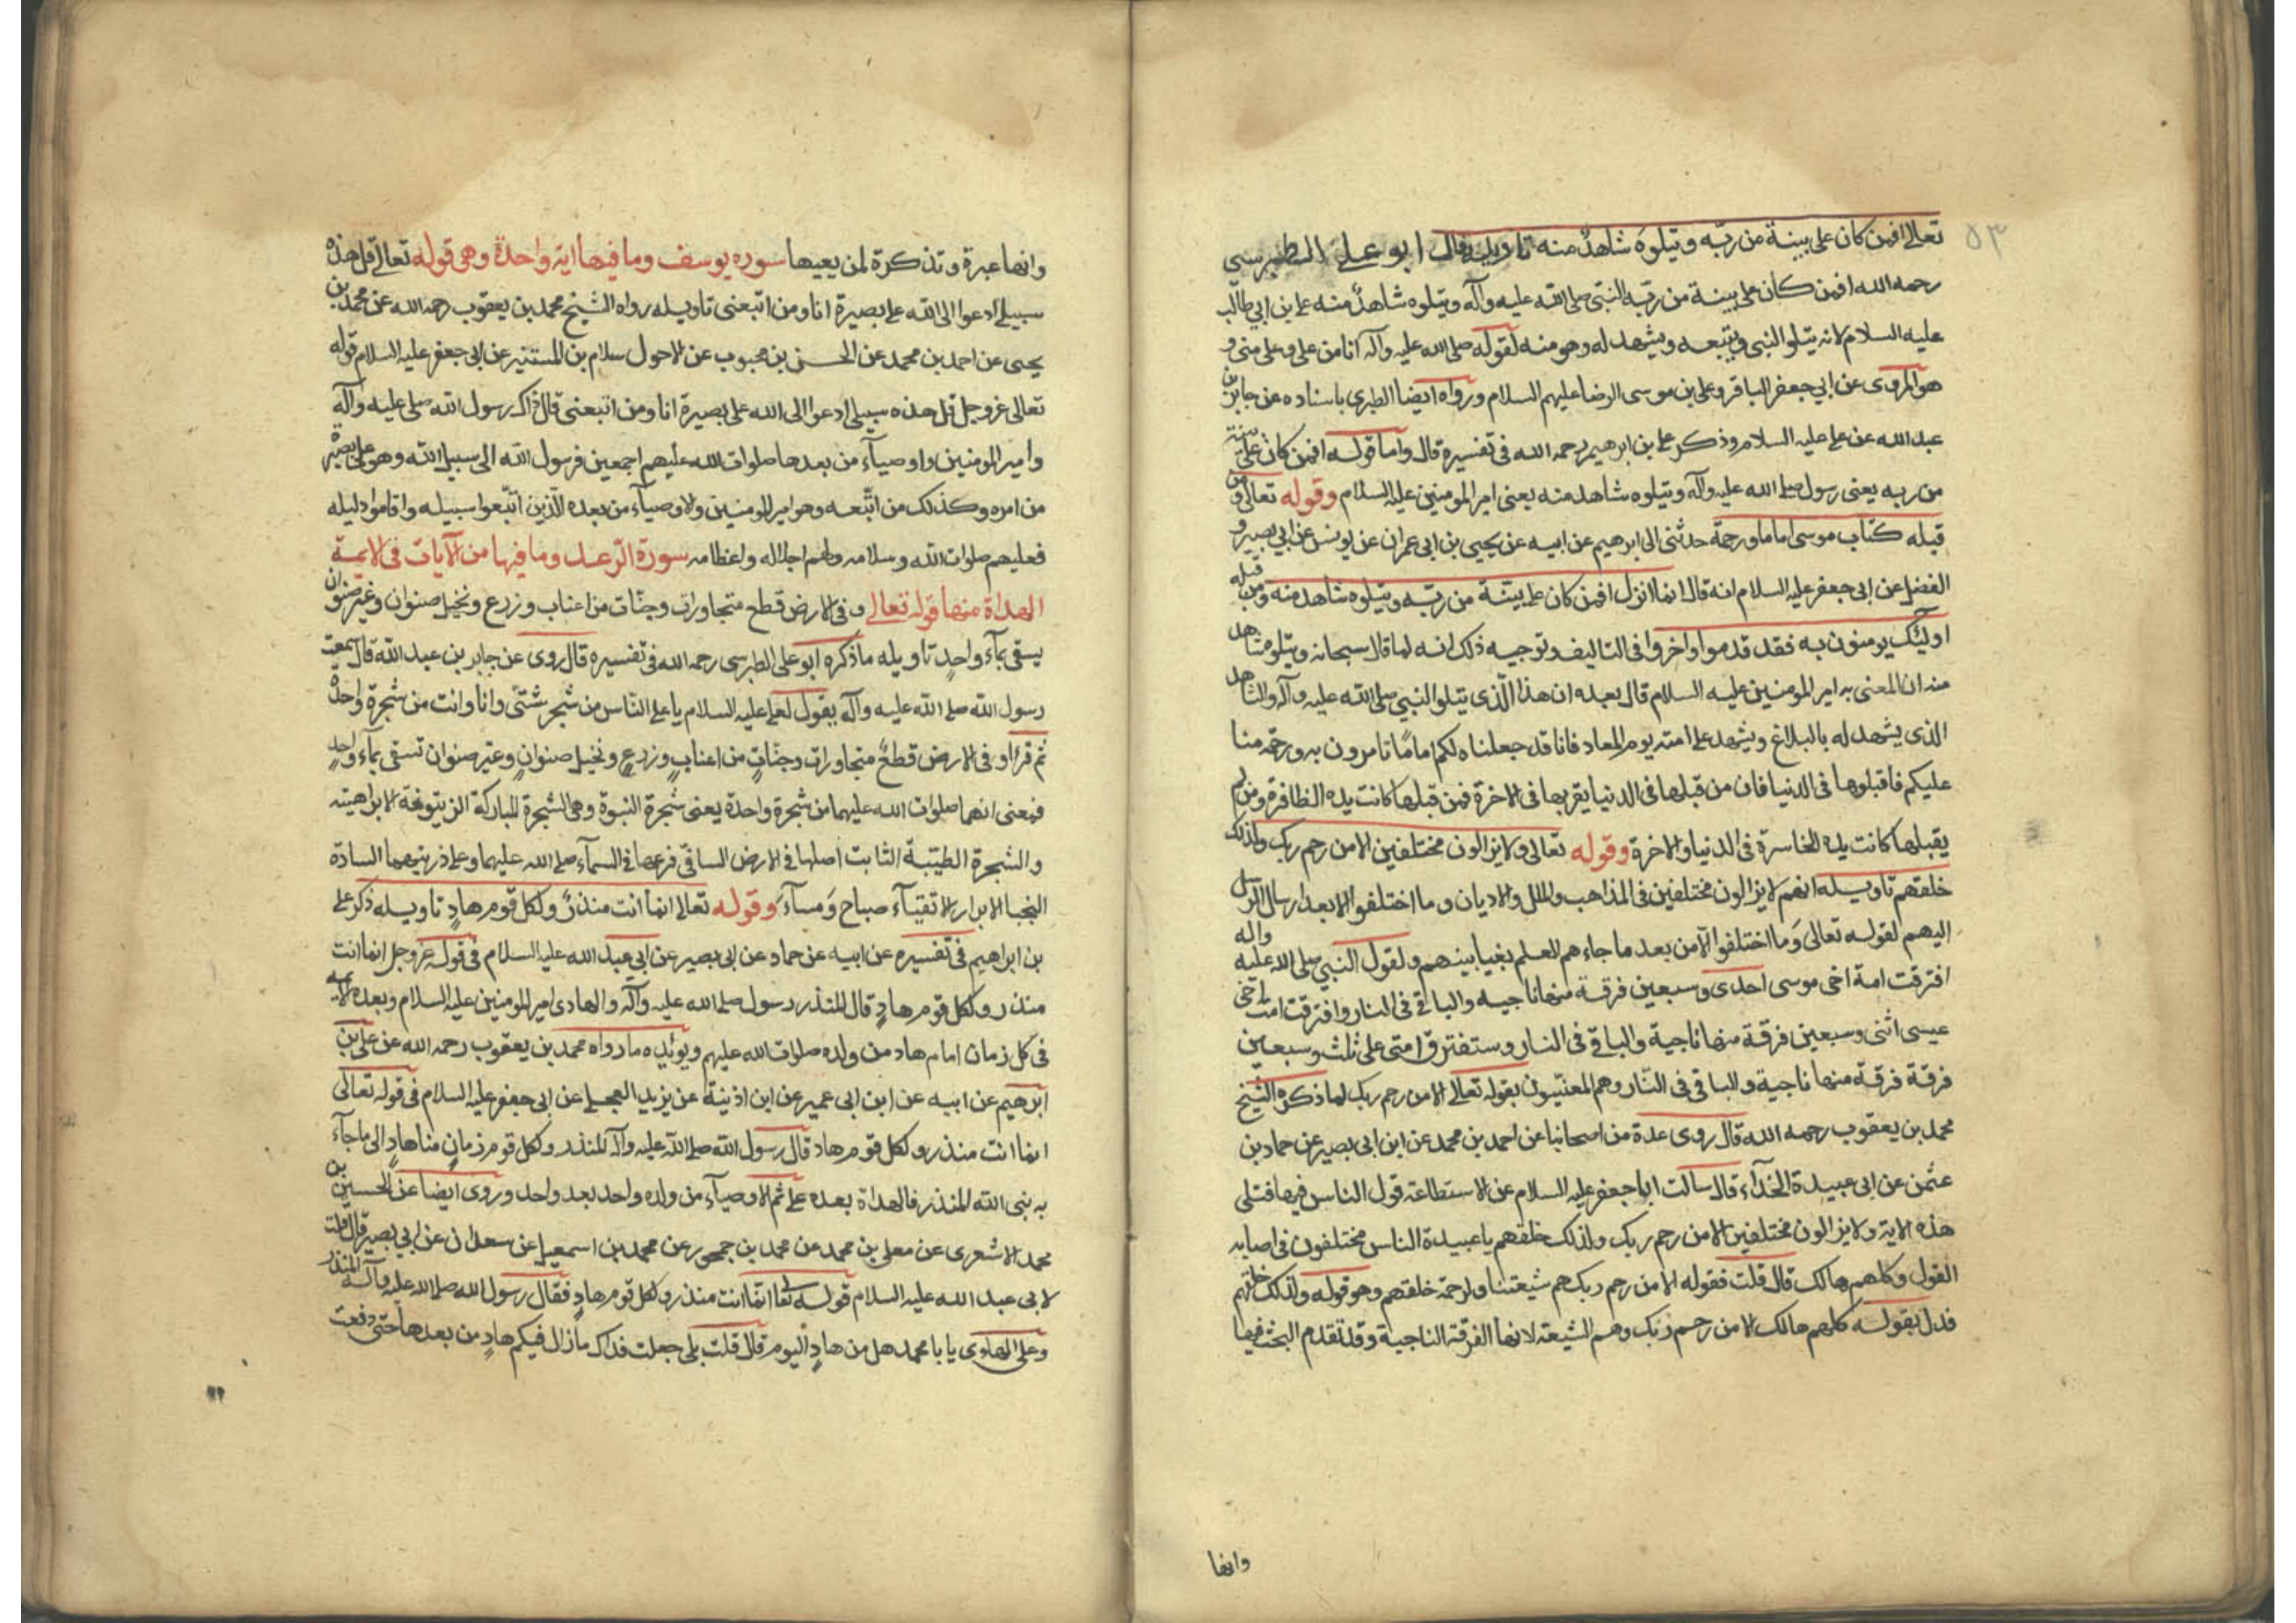 ٥٣
تعالى افمن كان على بينة من ربّه ويتلوه شاهدٌ منه تاويله قال ابو علي الطبرسي
رحمه الله افمن كان على بينة من ربّه النبيّ صلى الله عليه وآله ويتلوه شاهدٌ منه علي بن ابي طالب
عليه السلام لانه يتلو النبي ويتبعه ويشهد له وهو منه لقوله صلى الله عليه وآله انا من علي وعلي مني و
هو المروى عن ابي جعفر الباقر وعلي بن موسى الرضا عليهم السلام ورواه ايضا الطبرى باسناده عن جابر بن
عبد الله عن علي عليه السلام وذكر علي بن ابرهيم رحمه الله في تفسيره قال واما قوله افمن كان على بينة
من ربه يعنى رسول صلى الله عليه وآله ويتلوه شاهد منه يعنى امير المومنين عليه السلام وقوله تعالى ومن
قبله كتاب موسى اماما ورحمة حدثنى ابى ابرهيم عن ابيه عن يحيى بن ابى عمران عن يونس عن ابي بصير و
الفضل عن ابى جعفر عليه السلام انه قال انما انزل افمن كان على بينّة من ربّه ويتلوه شاهد منه ومن قبله
اولئك يومنون به فقد قدموا واخروا فى التاليف وتوجيه ذلك انه لما قال سبحانه ويتلوه شاهد
منه ان المعنى به امير المومنين عليه السلام قال بعده ان هذا الّذى يتلو النبي صلى الله عليه وآله والشاهد
الذى يشهد له بالبلاغ ويشهد على امته يوم المعاد فانا قد جعلناه لكم امامًا تامرون به ورحمة منا
عليكم فاقبلوها فى الدنيا فان من قبلها فى الدنيا يقربها فى الاخرة فمن قبلها كانت يده الظافرة ومن لم
يقبلها كانت يده الخاسرة فى الدنيا والاخرة وقوله تعالى ولا يزالون مختلفين الا من رحم ربك ولذلك
خلقهم تاويله انهم لا يزالون مختلفين فى المذاهب والملل والاديان وما اختلفوا الا بعد ارسال الرسل
اليهم لقوله تعالى وَما اختلفوا الآ من بعد ما جاءهم العلم بغيا بينهم ولقول النبي صلى الله عليه واله
افترقت امة اخى موسى احدى وسبعين فرقة منها ناجيه والباقي فى النار وافترقت امت اخى
عيسى اثنى وسبعين فرقة منها ناجية والباقي فى النار وستفترق امتى على ثلث وسبعين
فرقة فرقة منها ناجية والباقى فى النّار وهم المعنيّون بقوله تعالى الا من رحم ربك لما ذكره الشيخ
محمد بن يعقوب رحمه الله قال روى عدة من اصحابنا عن احمد بن محمد عن ابن ابى بصير عن حماد بن
عثمن عن ابى عبيدة الحذآء قال سالت ابا جعفر عليه السلام عن الاستطاعة قول الناس فيها فتلى
هذه الاية ولا يزالون مختلفين الا من رحم ربك ولذلك خلقهم يا عبيدة الناس مختلفون فى اصابه
القول وكلهم هالك قال قلت فقوله الا من رحم ربك هم شيعتنا ولرحمة خلقهم وهو قوله ولذلك خلقهم
فدل بقوله كلهم هالك الا من رحم ربك وهم الشيعة لانها الفرقة الناجية وقد تقدم البحث فيها
وانها
وانها عبرة وتذكرة لمن يعيها سورة يوسف وما فيها اية واحدة وهى قوله تعالى قل هذه
سبيلي ادعوا الى الله على بصيرة انا ومن اتبعنى تاويله رواه الشيخ محمد بن يعقوب رحمه الله عن محمد بن
يحيى عن احمد بن محمد عن الحسن بن محبوب عن الاحول سلام بن المستنير عن ابى جعفر عليه السلام قوله
تعالى عز وجل قل هذه سبيلي ادعوا الى الله على بصيرة انا ومن اتبعنى قال ذاك رسول الله صلى عليه وآله
وامير المومنين واوصيآء من بعدها صلوات الله عليهم اجمعين فرسول الله الى سبيل الله وهو على بصيرة
من امره وكذلك من اتّبعه وهو امير المومنين والاوصيآء من بعده الّذين اتّبعوا سبيله واقاموا دليله
فعليهم صلوات الله وسلامه ولهم اجلاله واعظامه سورة الرّعد وما فيها من الآيات فى الايمة
الهداة منها قوله تعالى وفى الارض قطع متجاورات وجنّات من اعناب وزرع ونخيل صنوان وغير صنوان
يسقى بمآء واحدٍ تاويله ما ذكره ابو على الطبرسى رحمه الله فى تفسيره قال روى عن جابر بن عبد الله قال سمعت
رسول الله صلى الله عليه وآله يقول لعلي عليه السلام يا علي النّاس من شجر شتّى وانا وانت من شجرة واحدة
ثم قرأ وفى الارض قطعٌ متجاورات وجنّاتٍ من اعنابٍ وزرعٍ ونخيل صنوانٍ وغير صنوان تسقى بمآء واحدٍ
فمعنى انهما صلوات الله عليهما من شجرة واحدة يعنى شجرة النبوة وهى الشجرة المباركة الزيتونة الابراهيمة
والشجرة الطيّبة الثابت اصلها فى الارض الساقى فرعها فى السمآء صلى الله عليهما وعلى ذريتهما السادة
النجبا الابرار الاتقيآء صباح وَمسآءَ وقوله تعالى انما انت منذرٌ ولكل قوم هادٍ تاويله ذكر على
بن ابراهيم فى تفسيره عن ابيه عن حماد عن ابى بصير عن ابي عبد الله عليه السلام فى قوله عز وجل انما انت
منذر ولكل قوم هادٍ قال المنذر رسول صلى الله عليه وآله والهادى امير المومنين عليه السلام وبعده الايمه
فى كل زمان امام هاد من ولده صلوات الله عليهم ويوئيده ما رواه محمد بن يعقوب رحمه الله عن على بن
ابرهيم عن ابيه عن ابن ابى عمير عن ابن اذنية عن يزيد العجلي عن ابى جعفر عليه السلام فى قوله تعالى
انما انت منذر ولكل قوم هاد قال رسول الله صلى الله عليه وآله المنذر ولكل قوم زمانٍ منا هادٍ الى ما جآء
به نبى الله المنذر فالهداة بعده على ثم الاوصيآء من ولده واحد بعد واحد وروى ايضا عن الحسين بن
محمد الاشعرى عن معلى بن محمد عن محمد بن جمهور عن محمد بن اسمعيل عن سعدان عن ابي بصير قال قلت
لابى عبد الله عليه السلام قوله تعا انما انت منذر ولكل قوم هادٍ فقال رسول الله صلى الله عليه وآله المنذر
وعلي الهادى يا با محمد هل من هادٍ اليوم قال قلت بلى جعلت فداك ما زال فيكم هادٍ من بعدها حتى دفعت